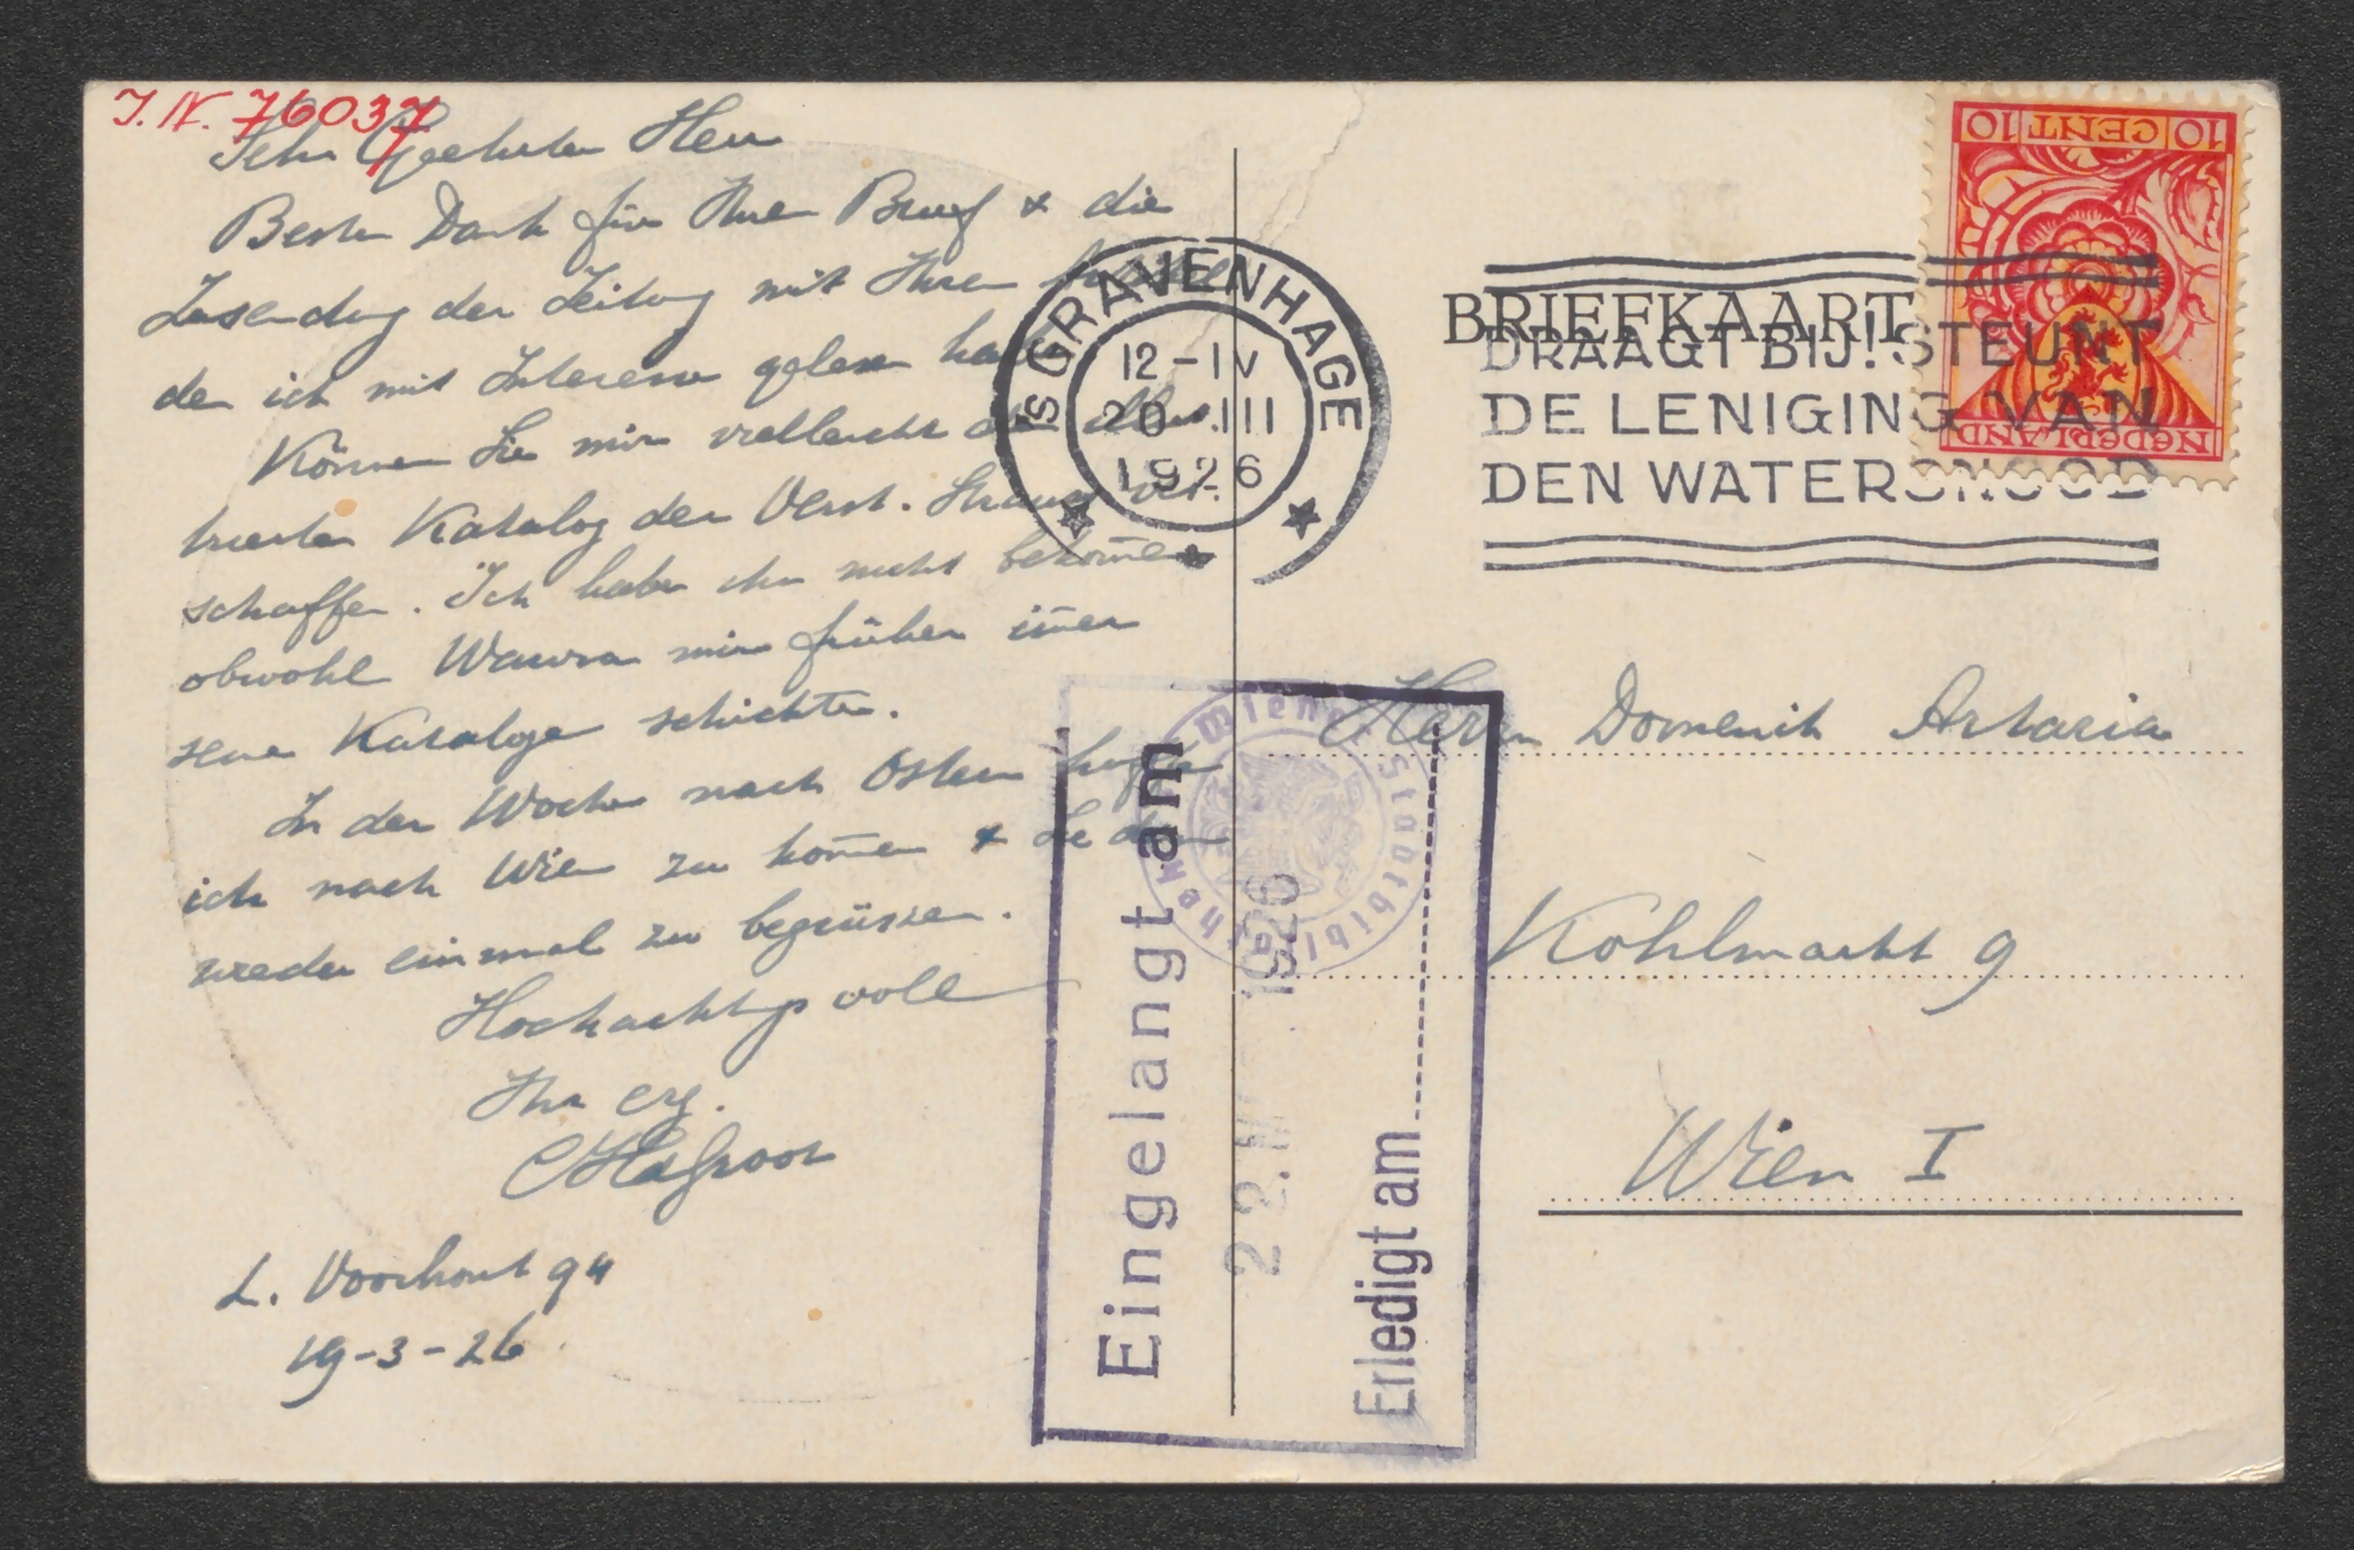 J.N. 76037
Sehr Geehrter Herr
Besten Dank für Ihren Brief & die
Zusendung der Zeitung mit Ihrem Artikel
den ich mit Interesse gelesen habe
Können Sie mir vielleicht den illus.
trierten Katalog der Verst. Strauss ver.
schaffen. Ich habe ihn nicht bekom̄en
obwohl Wawra mir früher im̄er
seine Kataloge schickte.
In der Woche nach Ostern hoffe
ich nach Wien zu kom̄en & Sie dann
wieder einmal zu begrüssen.
Hochachtgsvoll
Ihr erg.
CHdeGroot
L. Voorhout 94
19-3-26
'S GRAVENHAGE
12-IV
20 .III
1926
BRIEFKAART
DRAAGT BIJ! STEUNT
DE LENIGING VAN
DEN WATERSNOOD
10 CENT 10
NEDERLAND
Herrn Domenik Artaria
Kohlmarkt 9
Wien I
Eingelangt am
22.III 1926
Erledigt am
Wiener Stadtbibliothek